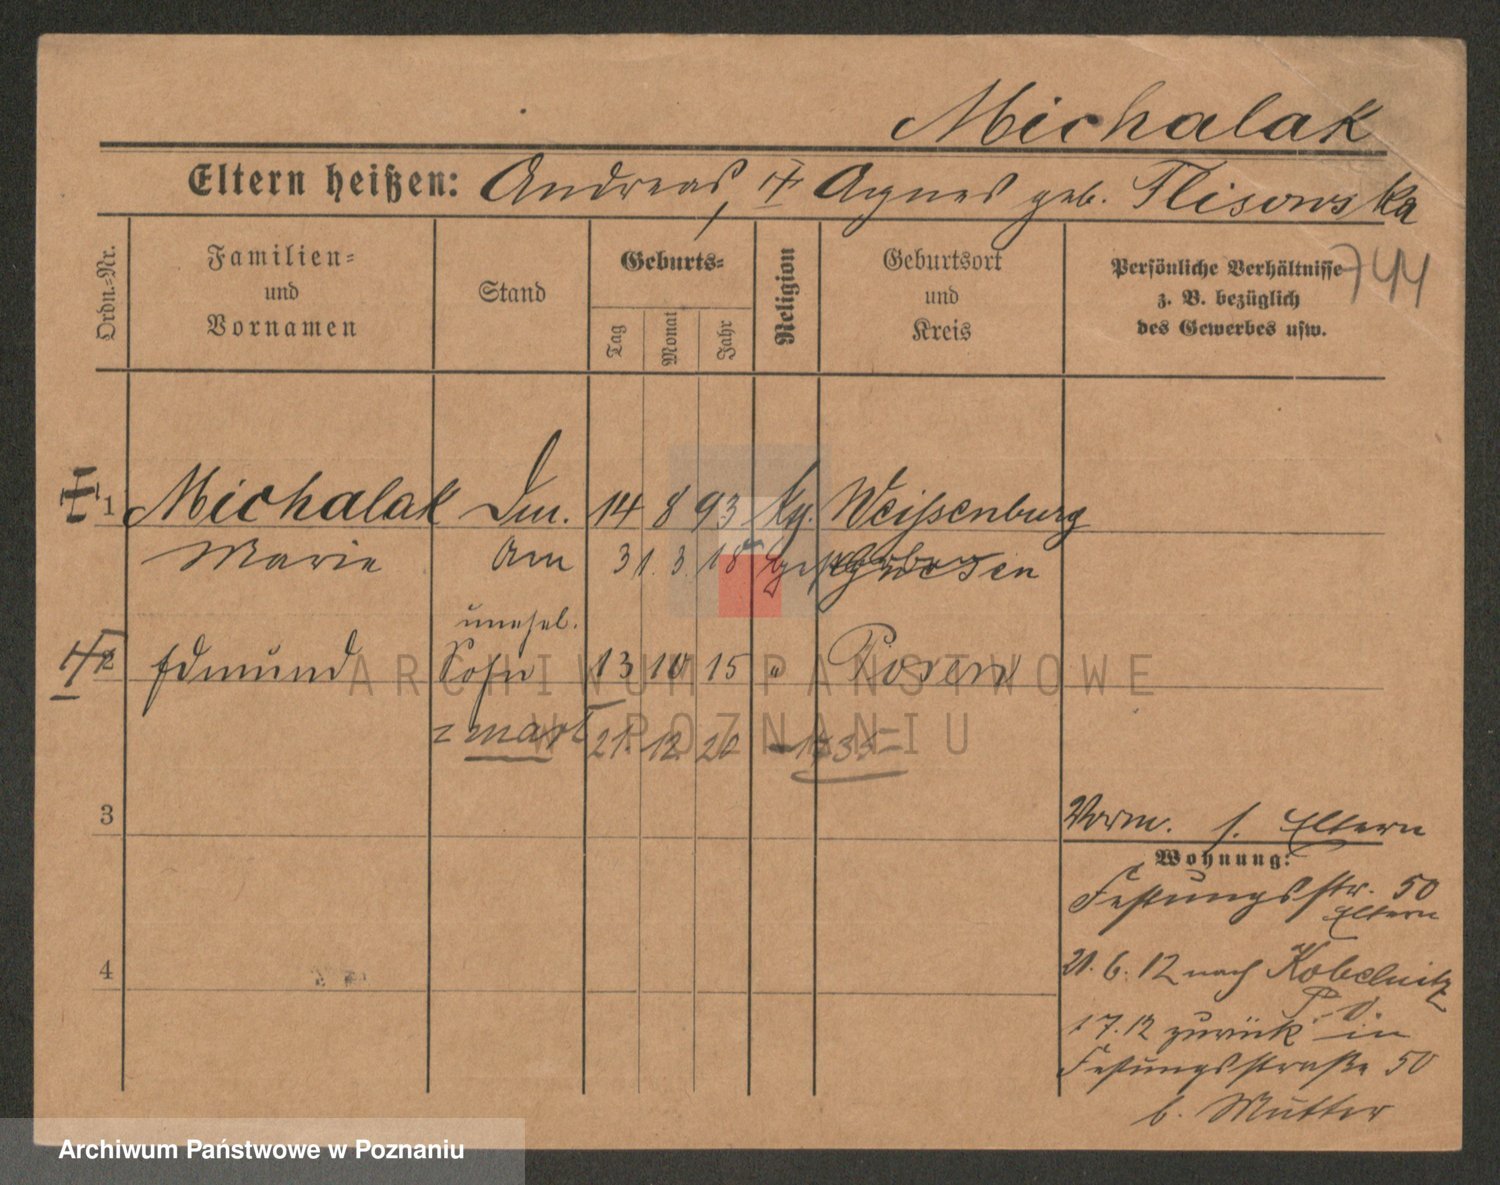 Michalak
Eltern heißen: Andreas, Agnes geb. Flisowska
744
Ordn.=Nr.
Familien= und Vornamen
Stand
Geburts=
Tag
Monat
Jahr
Religion
Geburtsort und Kreis
Persönliche Verhältnisse z. B. bezüglich des Gewerbes usw.
1 Michalak Dm. 14 8 93 kg. Weißenburg
Marie Am 31. 3. 18
unehel.
2 Edmund Sohn 13 10 15 " Posen
21. 12. 20
3
Vorm. s. Eltern
Wohnung:
Festungsstr. 50
Eltern
4
21. 6. 12 nach Kobelnitz
P.-O.
17. 12 zurück in
Festungsstraße 50
b. Mutter
ARCHIWUM PAŃSTWOWE
W POZNANIU
Archiwum Państwowe w Poznaniu